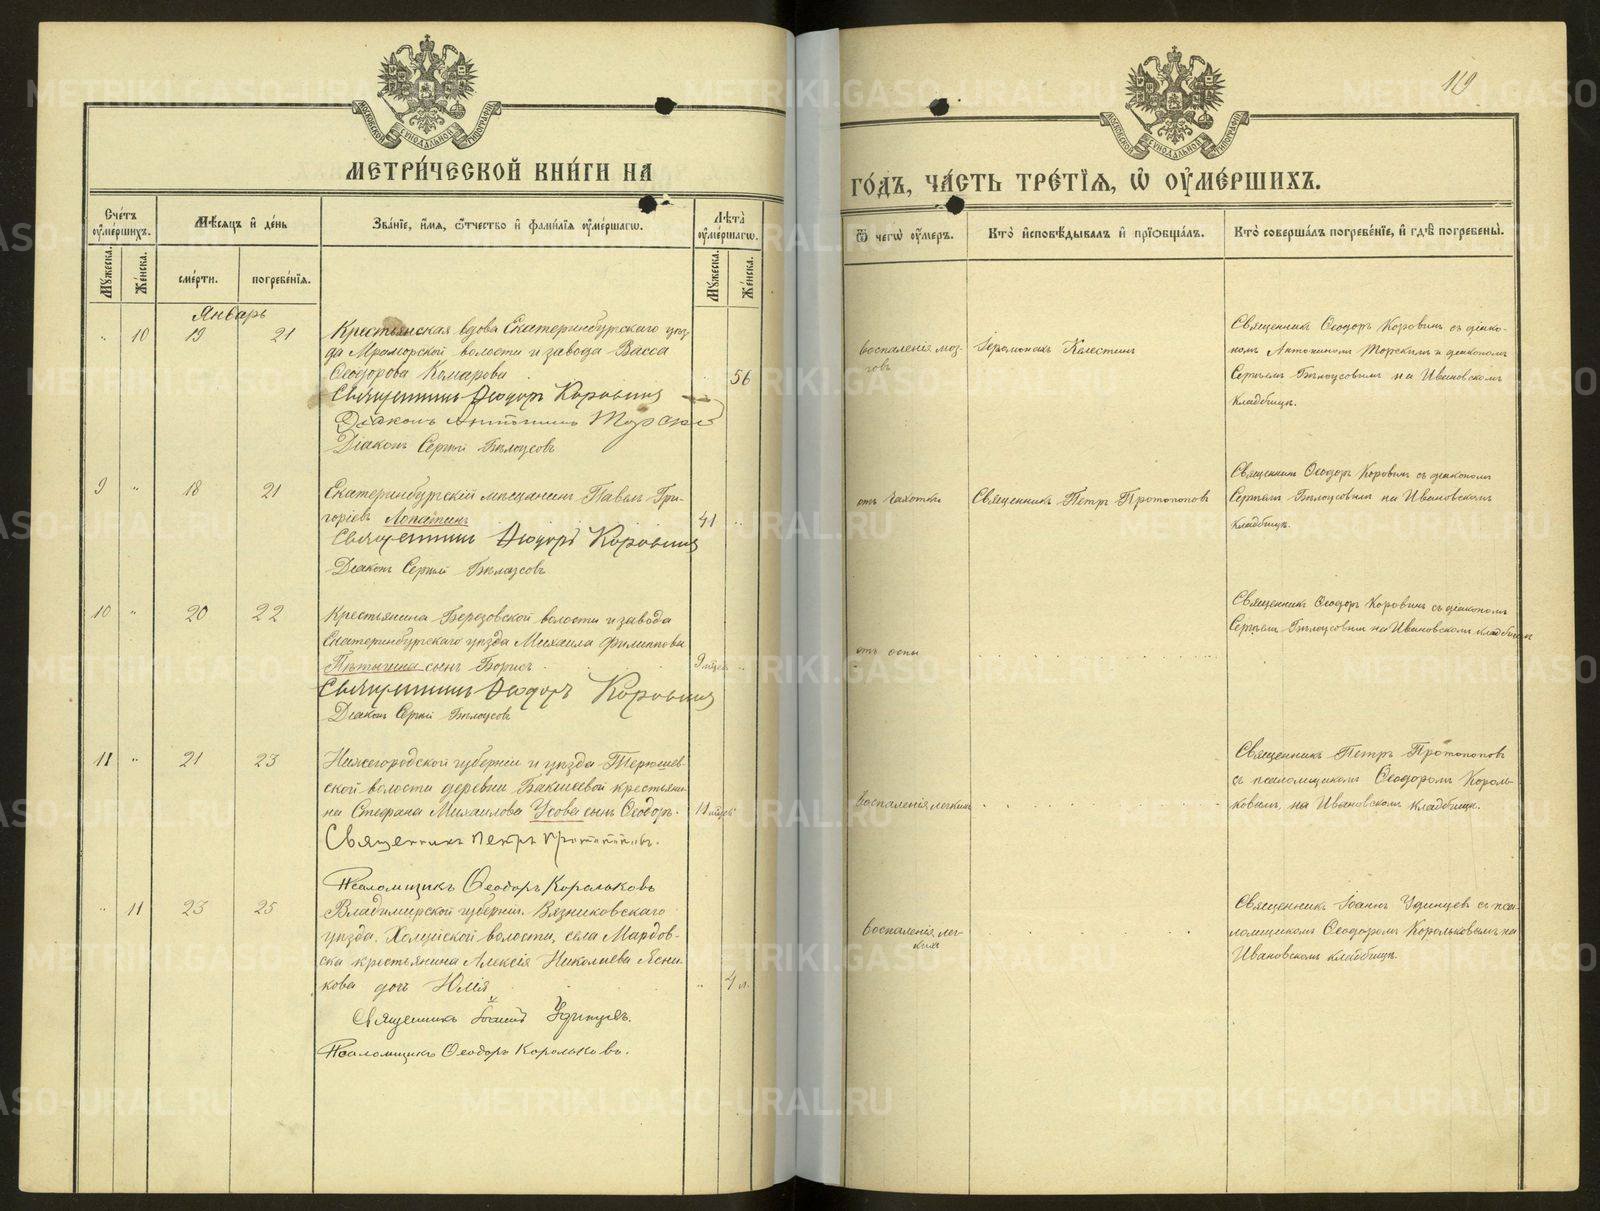 119
МОСКОВСКОЙ СѴНОДАЛЬНОЙ ТИПОГРАФІИ
МОСКОВСКОЙ СѴНОДАЛЬНОЙ ТИПОГРАФІИ
МЕТРИ́ЧЕСКОЙ КНИ́ГИ НА
ГО́ДЪ, ЧА́СТЬ ТРЕ́ТІѦ, Ѿ ОУМЕ́РШИХЪ.
Сче́тъ оуме́ршихъ.
Мѣ́сяцъ и де́нь
Зва́ніе, и́мѧ, ѻ́тчество и фами́лія оуме́ршагѡ.
Лѣта̀ оуме́ршагѡ.
Ѿ чегѡ̀ оу́меръ.
Кто̀ исповѣ́дывалъ и пріѡбща́лъ.
Кто̀ соверша́лъ погребе́ніе, и гдѣ̀ погребены̀.
Му́жеска.
Же́нска.
сме́рти.
погребе́нія.
Му́жеска.
Же́нска.
Январь
" 10 19 21
Крестьянская вдова Екатеринбургскаго уѣз-
да Мраморской волости и завода Васса
Ѳеодорова Комарова
56
Священникъ Ѳеодоръ Коровинъ
Діаконъ Антонинъ Торскій
Діаконъ Сергій Бѣлоусовъ
воспаленія моз-
говъ
Іеромонахъ Келестинъ
Священникъ Ѳеодоръ Коровинъ съ діако-
номъ Антониномъ Торскимъ и діакономъ
Сергіемъ Бѣлоусовымъ на Ивановскомъ
кладбищѣ.
9 " 18 21
Екатеринбургскій мѣщанинъ Павелъ Гри-
горіевъ Лопатинъ
41 "
Священникъ Ѳеодоръ Коровинъ
Діаконъ Сергій Бѣлоусовъ
отъ чахотки
Священникъ Петръ Протопоповъ
Священникъ Ѳеодоръ Коровинъ съ діакономъ
Сергіемъ Бѣлоусовымъ на Ивановскомъ
кладбищѣ.
10 " 20 22
Крестьянина Березовской волости и завода
Екатеринбургскаго уѣзда Михаила Филиппова
Пѣтыгина сынъ Борисъ
9 мѣсяц. "
Священникъ Ѳеодоръ Коровинъ
Діаконъ Сергій Бѣлоусовъ
отъ оспы
Священникъ Ѳеодоръ Коровинъ съ діакономъ
Сергіемъ Бѣлоусовымъ на Ивановскомъ кладбищѣ
11 " 21 23
Нижегородской губерніи и уѣзда Терюшев-
ской волости деревни Бакшеевой крестьяни-
на Стефана Михаилова Усова сынъ Ѳеодоръ.
11 мѣсяц.
Священникъ Петръ Протопоповъ.
Псаломщикъ Ѳеодоръ Корольковъ
воспаленія легкихъ
Священникъ Петръ Протопоповъ
съ псаломщикомъ Ѳеодоромъ Король-
ковымъ, на Ивановскомъ кладбищѣ.
" 11 23 25
Владимирской губерніи Вязниковскаго
уѣзда, Холуйской волости, села Мардов-
ска крестьянина Алексія Николаева Ясни-
кова дочь Юлія
" 4 л.
Священникъ Іоаннъ Удинцевъ.
Псаломщикъ Ѳеодоръ Корольковъ.
воспаленія лег-
кихъ
Священникъ Іоаннъ Удинцевъ съ пса-
ломщикомъ Ѳеодоромъ Корольковымъ на
Ивановскомъ кладбищѣ.
METRIKI.GASO-URAL.RU